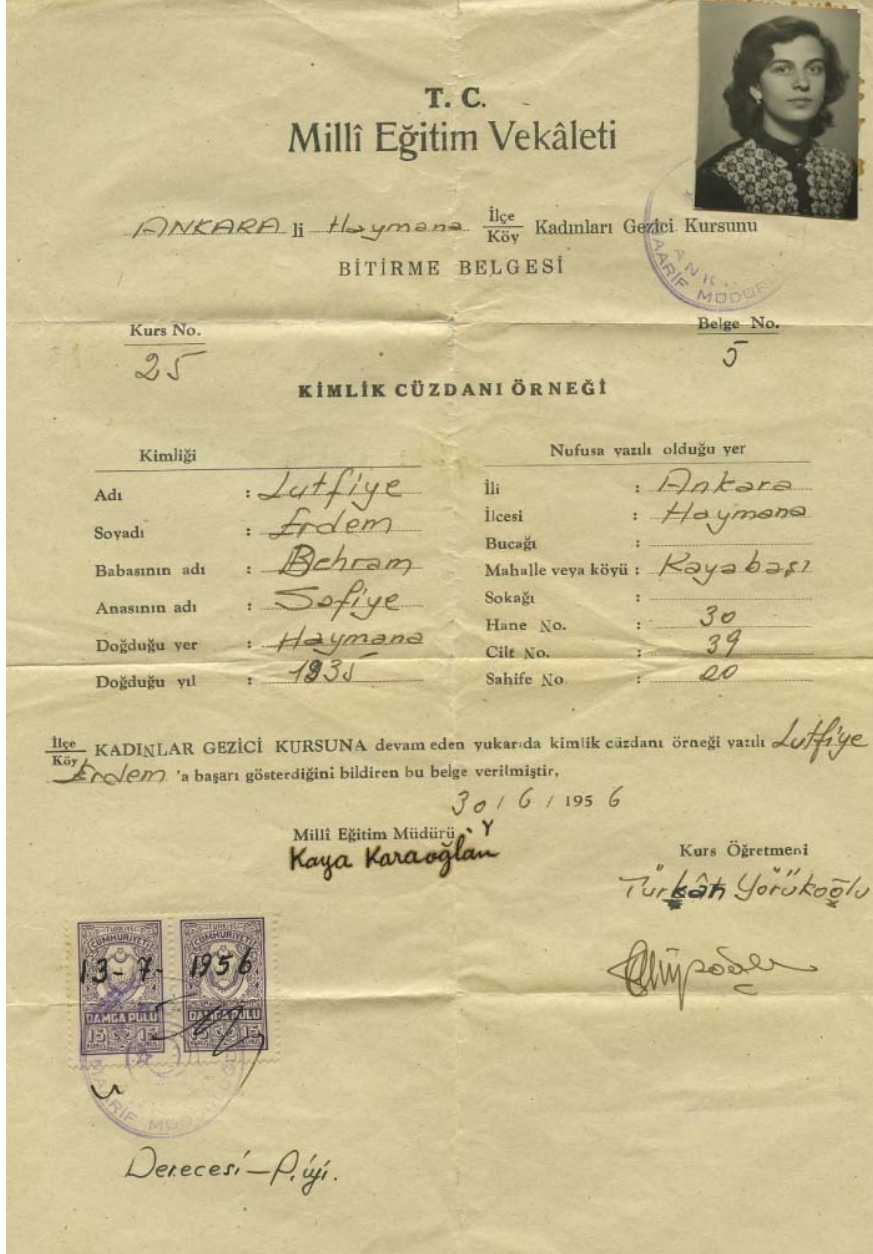 T. C.
Millî Eğitim Vekâleti
ANKARA li Haymana İlçe Köy Kadınları Gezici Kursunu
BİTİRME BELGESİ
ANK
MAARİF MÜDÜR
Kurs No.
25
Belge No.
5
KİMLİK CÜZDANI ÖRNEĞİ
Kimliği
Adı : Lutfiye
Soyadı : Erdem
Babasının adı : Behram
Anasının adı : Sofiye
Doğduğu yer : Haymana
Doğduğu yıl : 1935
Nufusa yazılı olduğu yer
İli : Ankara
İlcesi : Haymana
Bucağı :
Mahalle veya köyü : Kayabaşı
Sokağı :
Hane No. : 30
Cilt No. : 39
Sahife No : 20
İlçe Köy KADINLAR GEZİCİ KURSUNA devam eden yukarıda kimlik cüzdanı örneği yazılı Lutfiye
Erdem 'a başarı gösterdiğini bildiren bu belge verilmiştir,
30 / 6 / 195 6
Millî Eğitim Müdürü Y
Kaya Karaoğlan
Kurs Öğretmeni
Türkân Yörükoğlu
TÜRKİYE
CUMHURİYETİ
TÜRKİYE
CUMHURİYETİ
13-7-1956.
DAMGA PULU
DAMGA PULU
15 15
15 15
Derecesi - P. iyi.